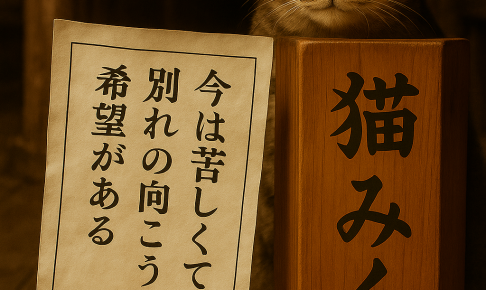 今は苦しくて
別れの向こう
希望がある
猫み